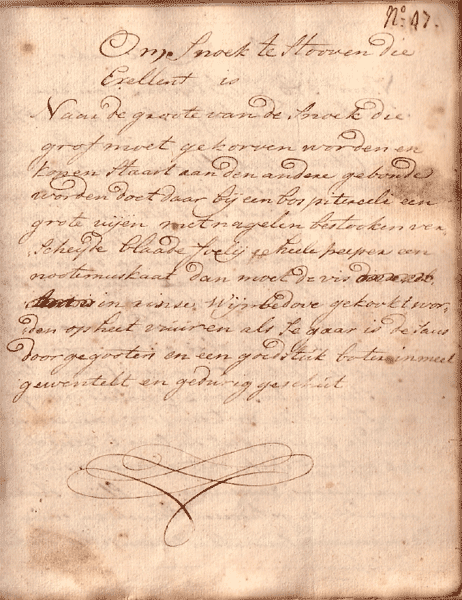 No. 47.
Om Snoek te Stooven die
Exellent is
Naar de groote van de Snoek die
grof moet gekorven worden en
kop en Staart aan den andere gebonde
worden doet daar bij een bos piterceli een
grote uijen met nagelen bestooken ver
scheijde blaade foelij heele peeper een
nootemuskaat dan moet de vis
in rinse Wijn bedove gekookt wor
den op heet vuur en als Se gaar is de Saus
door gegooten en een goed Stuk boter in meel
gewentelt en gedurig geschut